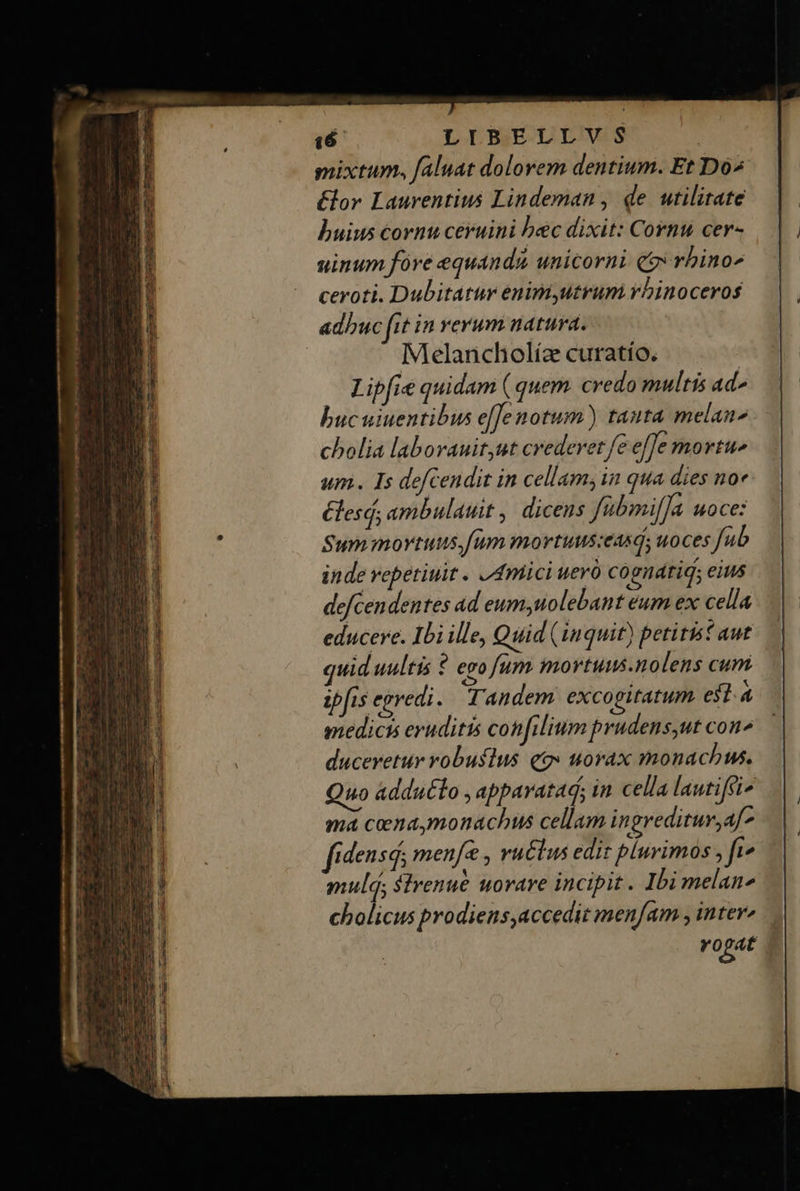 16 LIBELLVS
mixtum, ſaluat dolorem dentium. Et Do⸗
ctor Laurentius Lindeman, de utilitate
huius cornu ceruini hæc dixit: Cornu cer-
uinum fore æquandũ unicorni & rhino⸗
ceroti. Dubitatur enim, utrum rhinoceros
adhuc ſit in rerum natura.
Melancholíæ curatío.
Lipſiæ quidam (quem credo multis ad⸗
huc uiuentibus eſſe notum) tanta melan⸗
cholia laborauit, ut crederet ſe eſſe mortu⸗
um. Is deſcendit in cellam, in qua dies no⸗
ctesq; ambulauit, dicens ſubmiſſa uoce:
Sum mortuus, ſum mortuus: easq; uoces ſub
inde repetiuit. Amici uerò cognatiq; eius
deſcendentes ad eum, uolebant eum ex cella
educere. Ibi ille, Quid (inquit) petitis? aut
quid uultis? ego ſum mortuus. nolens cum
ipſis egredi. Tandem excogitatum est à
medicis eruditis conſilium prudens, ut con⸗
duceretur robustus & uorax monachus.
Quo adducto, apparataq; in cella lautiſsi⸗
ma cœna, monachus cellam ingreditur, aſ⸗
ſidensq; menſæ, ructus edit plurimos, ſi⸗
mulq; strenuè uorare incipit. Ibi melan⸗
cholicus prodiens, accedit menſam, inter⸗
rogat